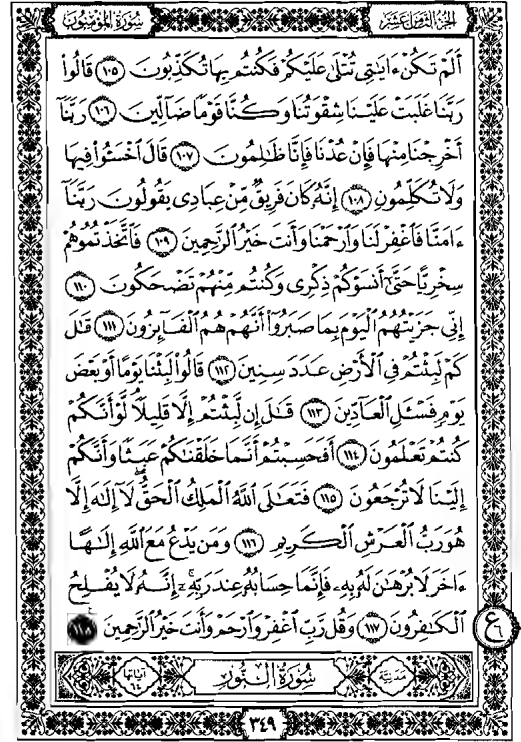 سورة المؤمنون
الجزء الثامن عشر
أَلَمْ تَكُنْ ءَايَٰتِى تُتْلَىٰ عَلَيْكُمْ فَكُنتُم بِهَا تُكَذِّبُونَ ١٠٥ قَالُوا۟
رَبَّنَا غَلَبَتْ عَلَيْنَا شِقْوَتُنَا وَكُنَّا قَوْمًا ضَآلِّينَ ١٠٦ رَبَّنَآ
أَخْرِجْنَا مِنْهَا فَإِنْ عُدْنَا فَإِنَّا ظَٰلِمُونَ ١٠٧ قَالَ ٱخْسَـُٔوا۟ فِيهَا
وَلَا تُكَلِّمُونِ ١٠٨ إِنَّهُۥ كَانَ فَرِيقٌ مِّنْ عِبَادِى يَقُولُونَ رَبَّنَآ
ءَامَنَّا فَٱغْفِرْ لَنَا وَٱرْحَمْنَا وَأَنتَ خَيْرُ ٱلرَّٰحِمِينَ ١٠٩ فَٱتَّخَذْتُمُوهُمْ
سِخْرِيًّا حَتَّىٰٓ أَنسَوْكُمْ ذِكْرِى وَكُنتُم مِّنْهُمْ تَضْحَكُونَ ١١٠
إِنِّى جَزَيْتُهُمُ ٱلْيَوْمَ بِمَا صَبَرُوٓا۟ أَنَّهُمْ هُمُ ٱلْفَآئِزُونَ ١١١ قَٰلَ
كَمْ لَبِثْتُمْ فِى ٱلْأَرْضِ عَدَدَ سِنِينَ ١١٢ قَالُوا۟ لَبِثْنَا يَوْمًا أَوْ بَعْضَ
يَوْمٍ فَسْـَٔلِ ٱلْعَآدِّينَ ١١٣ قَٰلَ إِن لَّبِثْتُمْ إِلَّا قَلِيلًا لَّوْ أَنَّكُمْ
كُنتُمْ تَعْلَمُونَ ١١٤ أَفَحَسِبْتُمْ أَنَّمَا خَلَقْنَٰكُمْ عَبَثًا وَأَنَّكُمْ
إِلَيْنَا لَا تُرْجَعُونَ ١١٥ فَتَعَٰلَى ٱللَّهُ ٱلْمَلِكُ ٱلْحَقُّ ۖ لَآ إِلَٰهَ إِلَّا
هُوَ رَبُّ ٱلْعَرْشِ ٱلْكَرِيمِ ١١٦ وَمَن يَدْعُ مَعَ ٱللَّهِ إِلَٰهًا
ءَاخَرَ لَا بُرْهَٰنَ لَهُۥ بِهِۦ فَإِنَّمَا حِسَابُهُۥ عِندَ رَبِّهِۦٓ ۚ إِنَّهُۥ لَا يُفْلِحُ
ٱلْكَٰفِرُونَ ١١٧ وَقُل رَّبِّ ٱغْفِرْ وَٱرْحَمْ وَأَنتَ خَيْرُ ٱلرَّٰحِمِينَ ١١٨
ع ٦
مدنية
سورة النور
آياتها ٦٤
٣٤٩